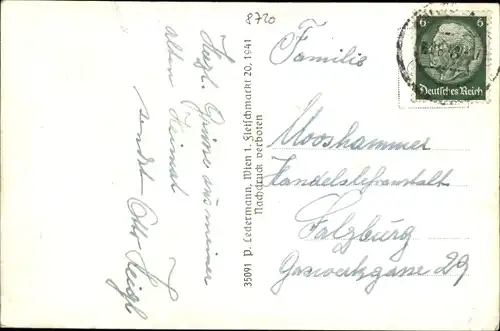 8720
Herzl. Grüsse aus meiner
alten Heimat
sendet Otto
35091 P. Ledermann, Wien 1. Fleischmarkt 20. 1941
Nachdruck verboten
6 6
Deutsches Reich
Familie
Mooshammer
Handelslehranstalt
Salzburg
Gaswerkgasse 29